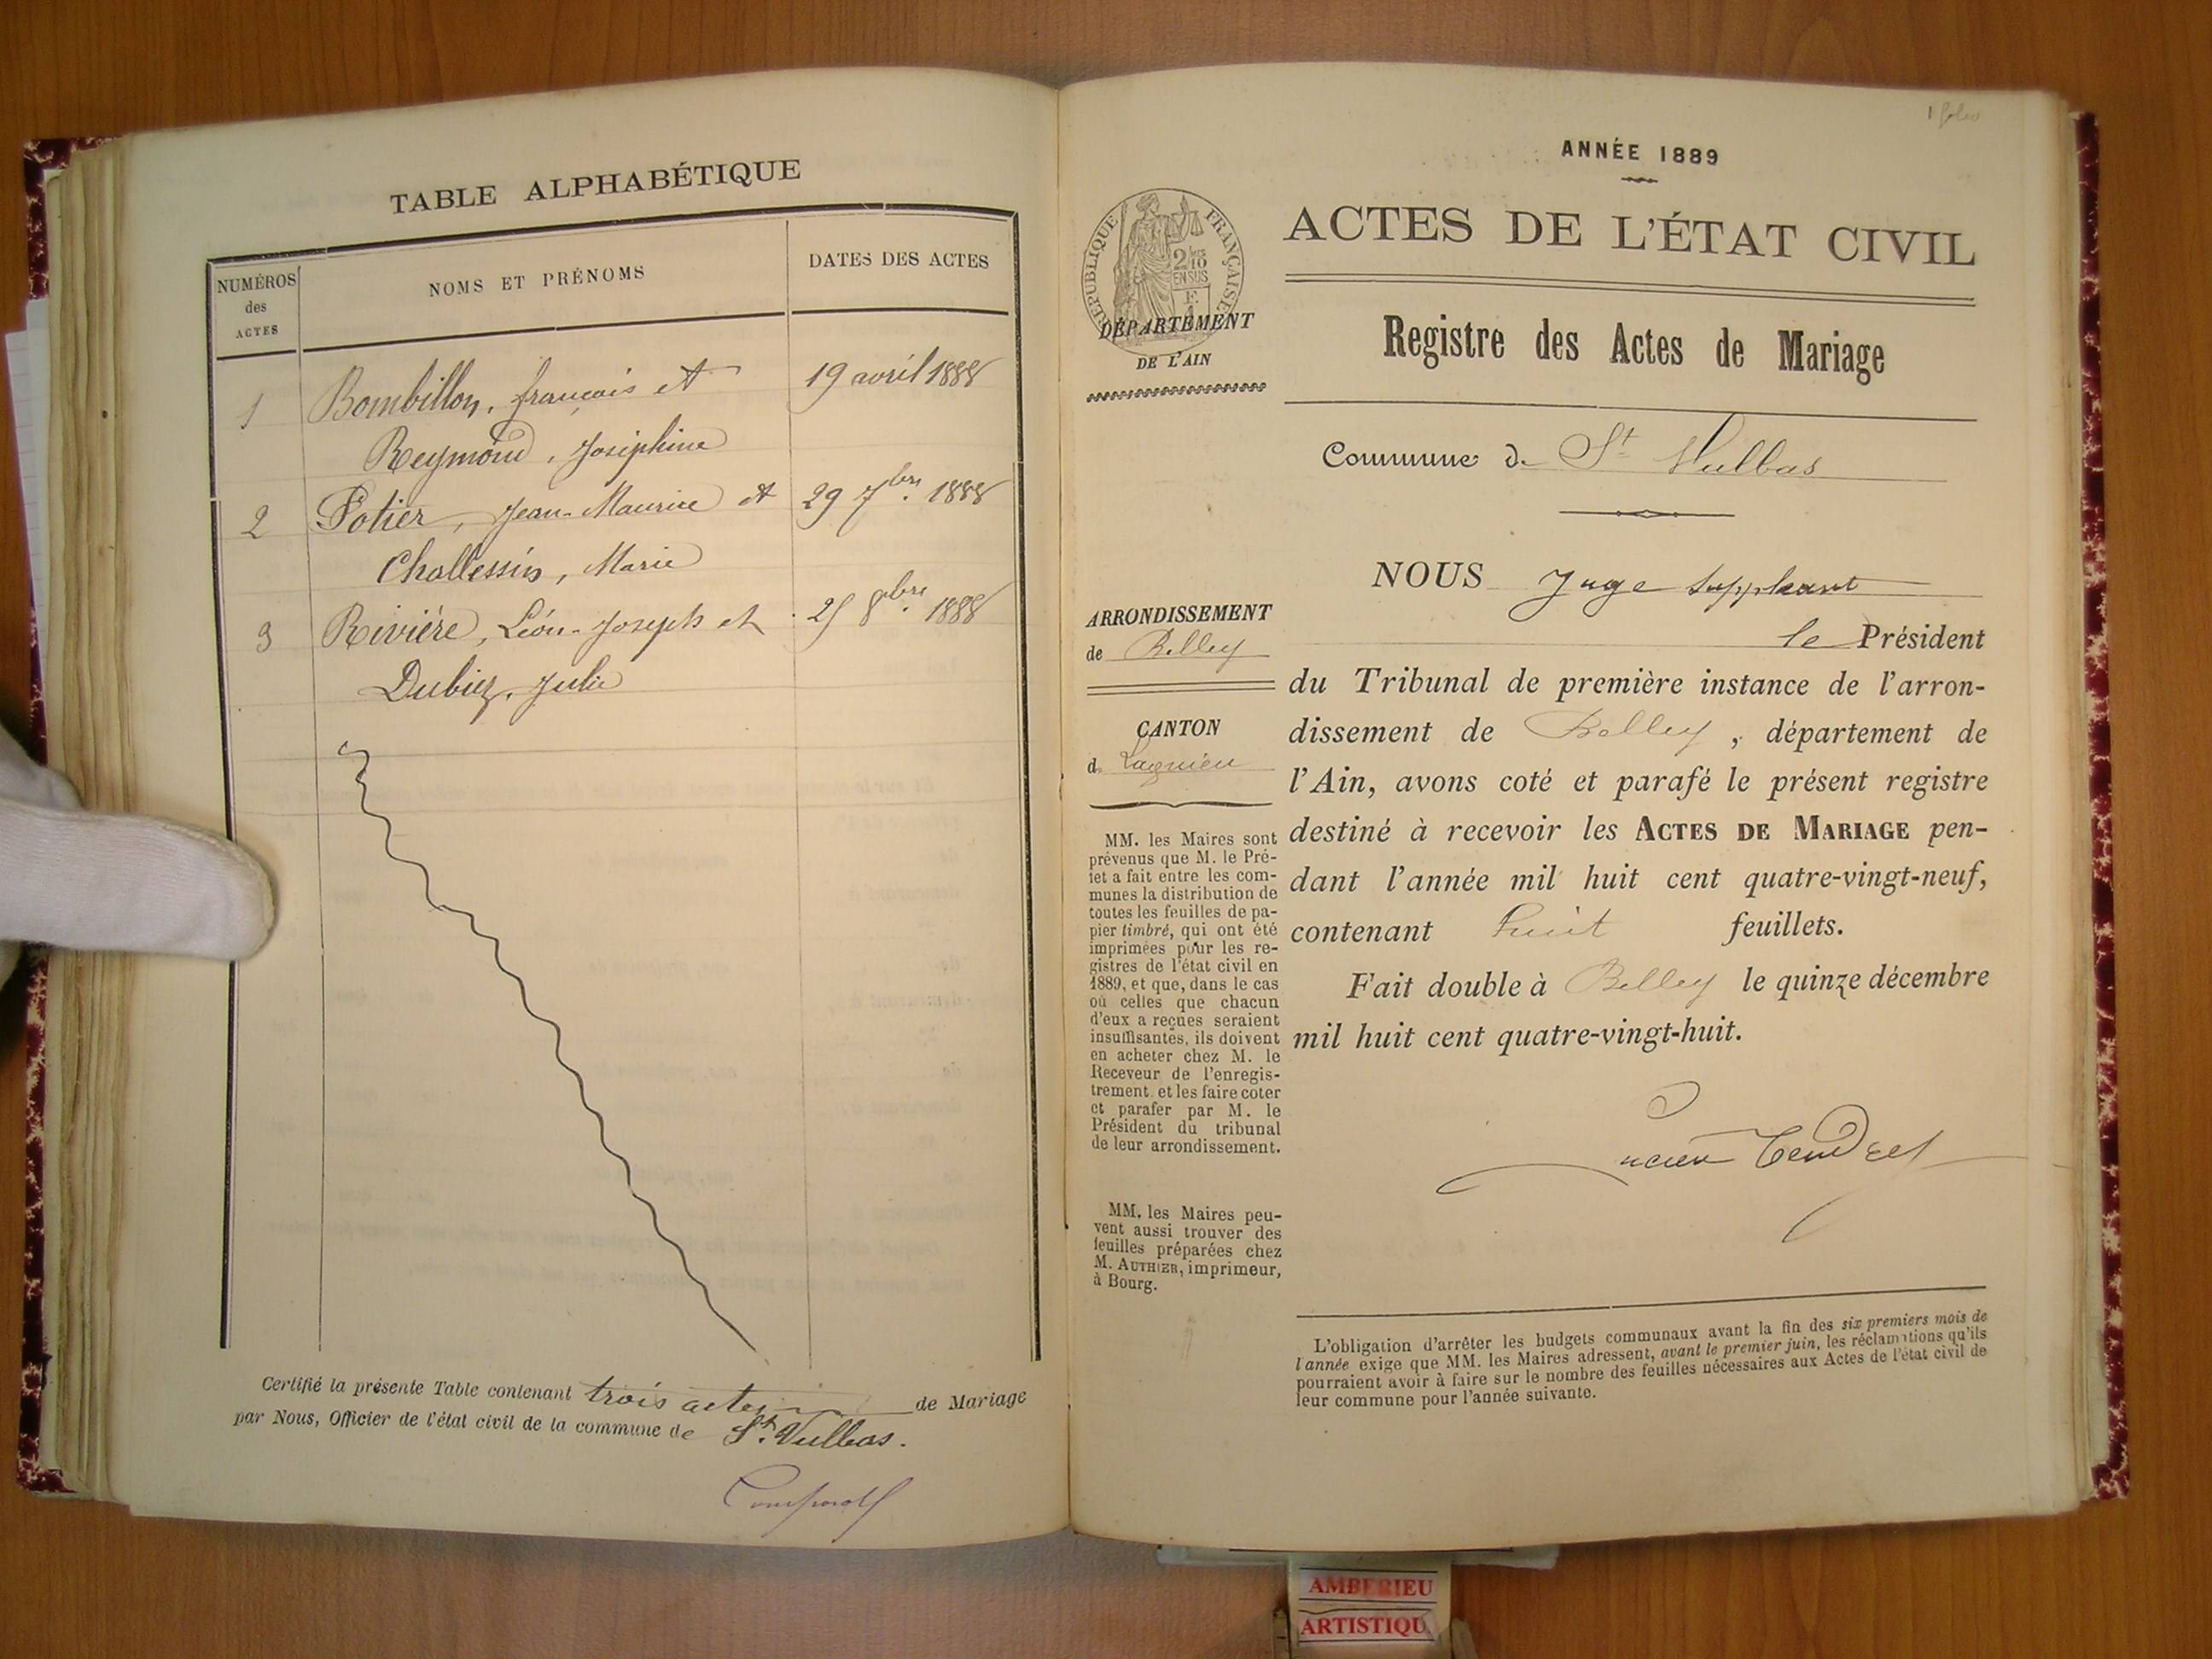 TABLE ALPHABÉTIQUE
NUMÉROS des ACTES
NOMS ET PRÉNOMS
DATES DES ACTES
1 Bombillon, françois et 19 avril 1888
Reymond, Joséphine
2 Potier, Jean-Maurice et 29 7bre. 1888
Chollessin, Marie
3 Rivière, Léon-Joseph et 25 8bre. 1888
Dubiez, Julie
Certifié la présente Table contenant trois actes de Mariage
par Nous, Officier de l'état civil de la commune de St. Vulbas.
1 folio
ANNÉE 1889
ACTES DE L'ÉTAT CIVIL
Registre des Actes de Mariage
RÉPUBLIQUE FRANÇAISE
2/10
EN SUS
DÉPARTEMENT
DE L'AIN
Commune de St Vulbas
ARRONDISSEMENT
de Belley
CANTON
de Lagnieu
MM. les Maires sont
prévenus que M. le Pré-
fet a fait entre les com-
munes la distribution de
toutes les feuilles de pa-
pier timbré, qui ont été
imprimées pour les re-
gistres de l'état civil en
1889, et que, dans le cas
où celles que chacun
d'eux a reçues seraient
insuffisantes, ils doivent
en acheter chez M. le
Receveur de l'enregis-
trement et les faire coter
et parafer par M. le
Président du tribunal
de leur arrondissement.
MM. les Maires peu-
vent aussi trouver des
feuilles préparées chez
M. AUTHIER, imprimeur,
à Bourg.
NOUS Juge suppléant
le Président
du Tribunal de première instance de l'arron-
dissement de Belley, département de
l'Ain, avons coté et parafé le présent registre
destiné à recevoir les ACTES DE MARIAGE pen-
dant l'année mil huit cent quatre-vingt-neuf,
contenant huit feuillets.
Fait double à Belley le quinze décembre
mil huit cent quatre-vingt-huit.
L'obligation d'arrêter les budgets communaux avant la fin des six premiers mois de
l'année exige que MM. les Maires adressent, avant le premier juin, les réclamations qu'ils
pourraient avoir à faire sur le nombre des feuilles nécessaires aux Actes de l'état civil de
leur commune pour l'année suivante.
AMBERIEU
ARTISTIQU